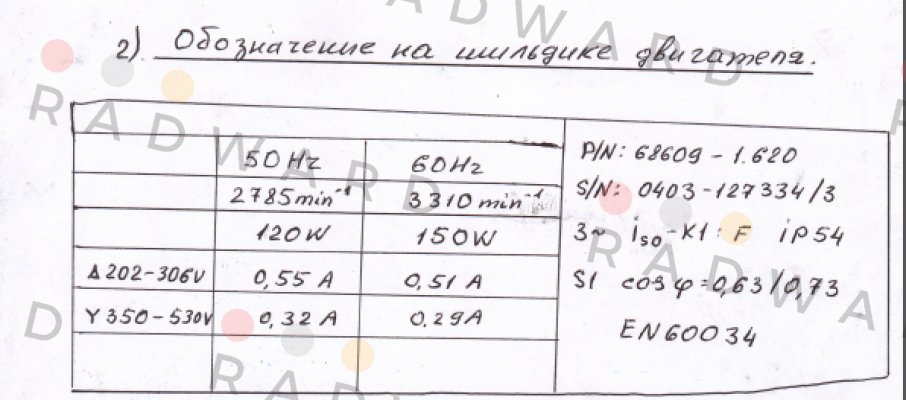 2) Обозначение на шильдике двигателя.
50Hz 60Hz
2785min⁻¹ 3310min⁻¹
120W 150W
Δ202-306V 0,55 A 0,51 A
Y350-530V 0,32 A 0.29A
P/N: 68609-1.620
S/N: 0403-127334/3
3~ iso-Kl: F iP54
S1 cosφ=0,63/0,73
EN60034
RADWARD
RADWARD
RADWA
D
RAD